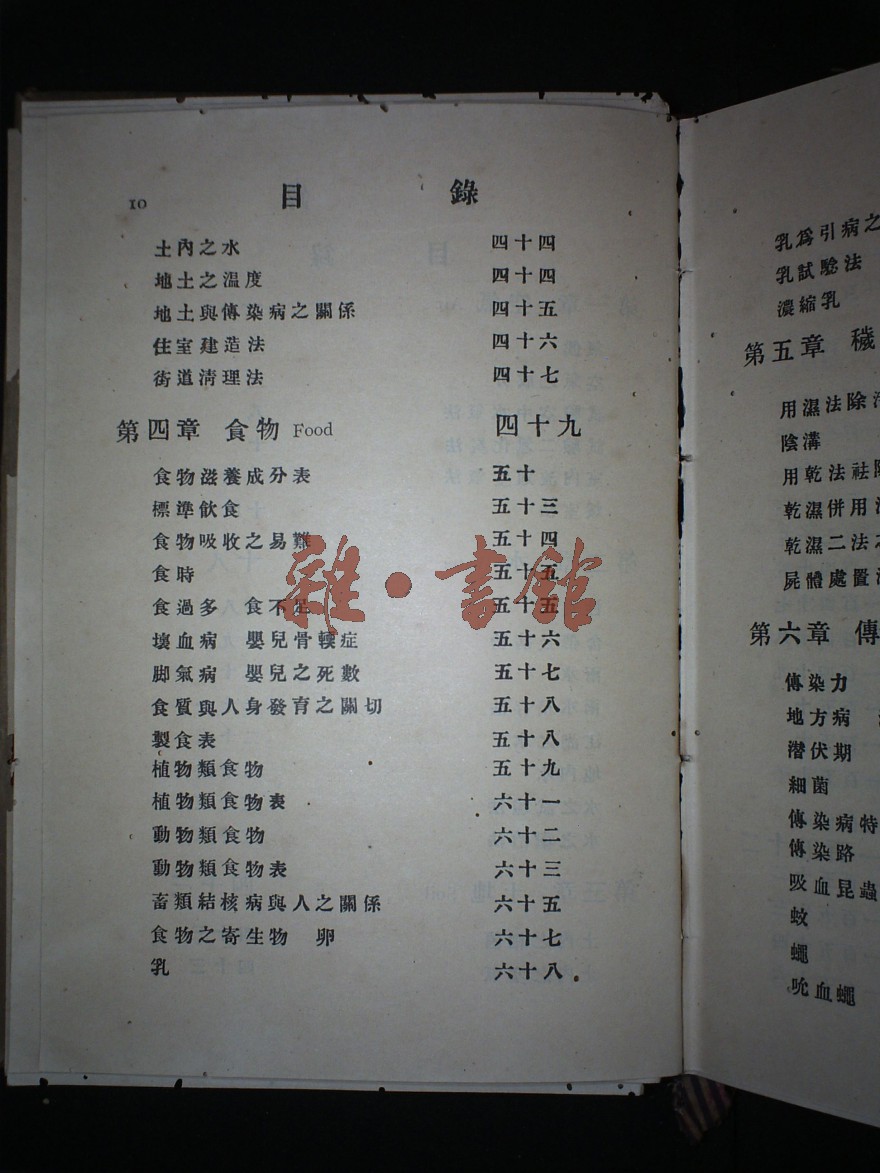 10 目錄
土內之水 四十四
地土之溫度 四十四
地土與傳染病之關係 四十五
住室建造法 四十六
街道淸理法 四十七
第四章 食物 Food 四十九
食物滋養成分表 五十
標準飲食 五十三
食物吸收之易難 五十四
食時 五十五
食過多 食不足 五十五
壞血病 嬰兒骨輭症 五十六
脚氣病 嬰兒之死數 五十七
食質與人身發育之關切 五十八
製食表 五十八
植物類食物 五十九
植物類食物表 六十一
動物類食物 六十二
動物類食物表 六十三
畜類結核病與人之關係 六十五
食物之寄生物 卵 六十七
乳 六十八
雜·書館
乳爲引病之
乳試騐法
濃縮乳
第五章 穢
用濕法除
陰溝
用乾法祛除
乾濕併用
乾濕二法之
屍體處置
第六章 傳
傳染力
地方病
潛伏期
細菌
傳染病特
傳染路
吸血昆蟲
蚊
蠅
吮血蠅